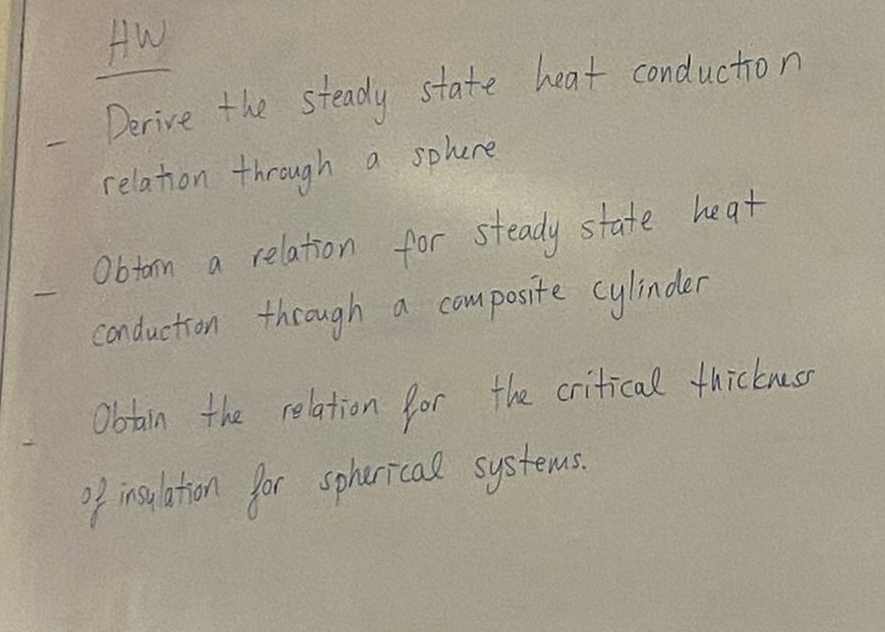 HW
- Derive the steady state heat conduction
relation through a sphere
- Obtain a relation for steady state heat
conduction through a composite cylinder
- Obtain the relation for the critical thickness
of insulation for spherical systems.